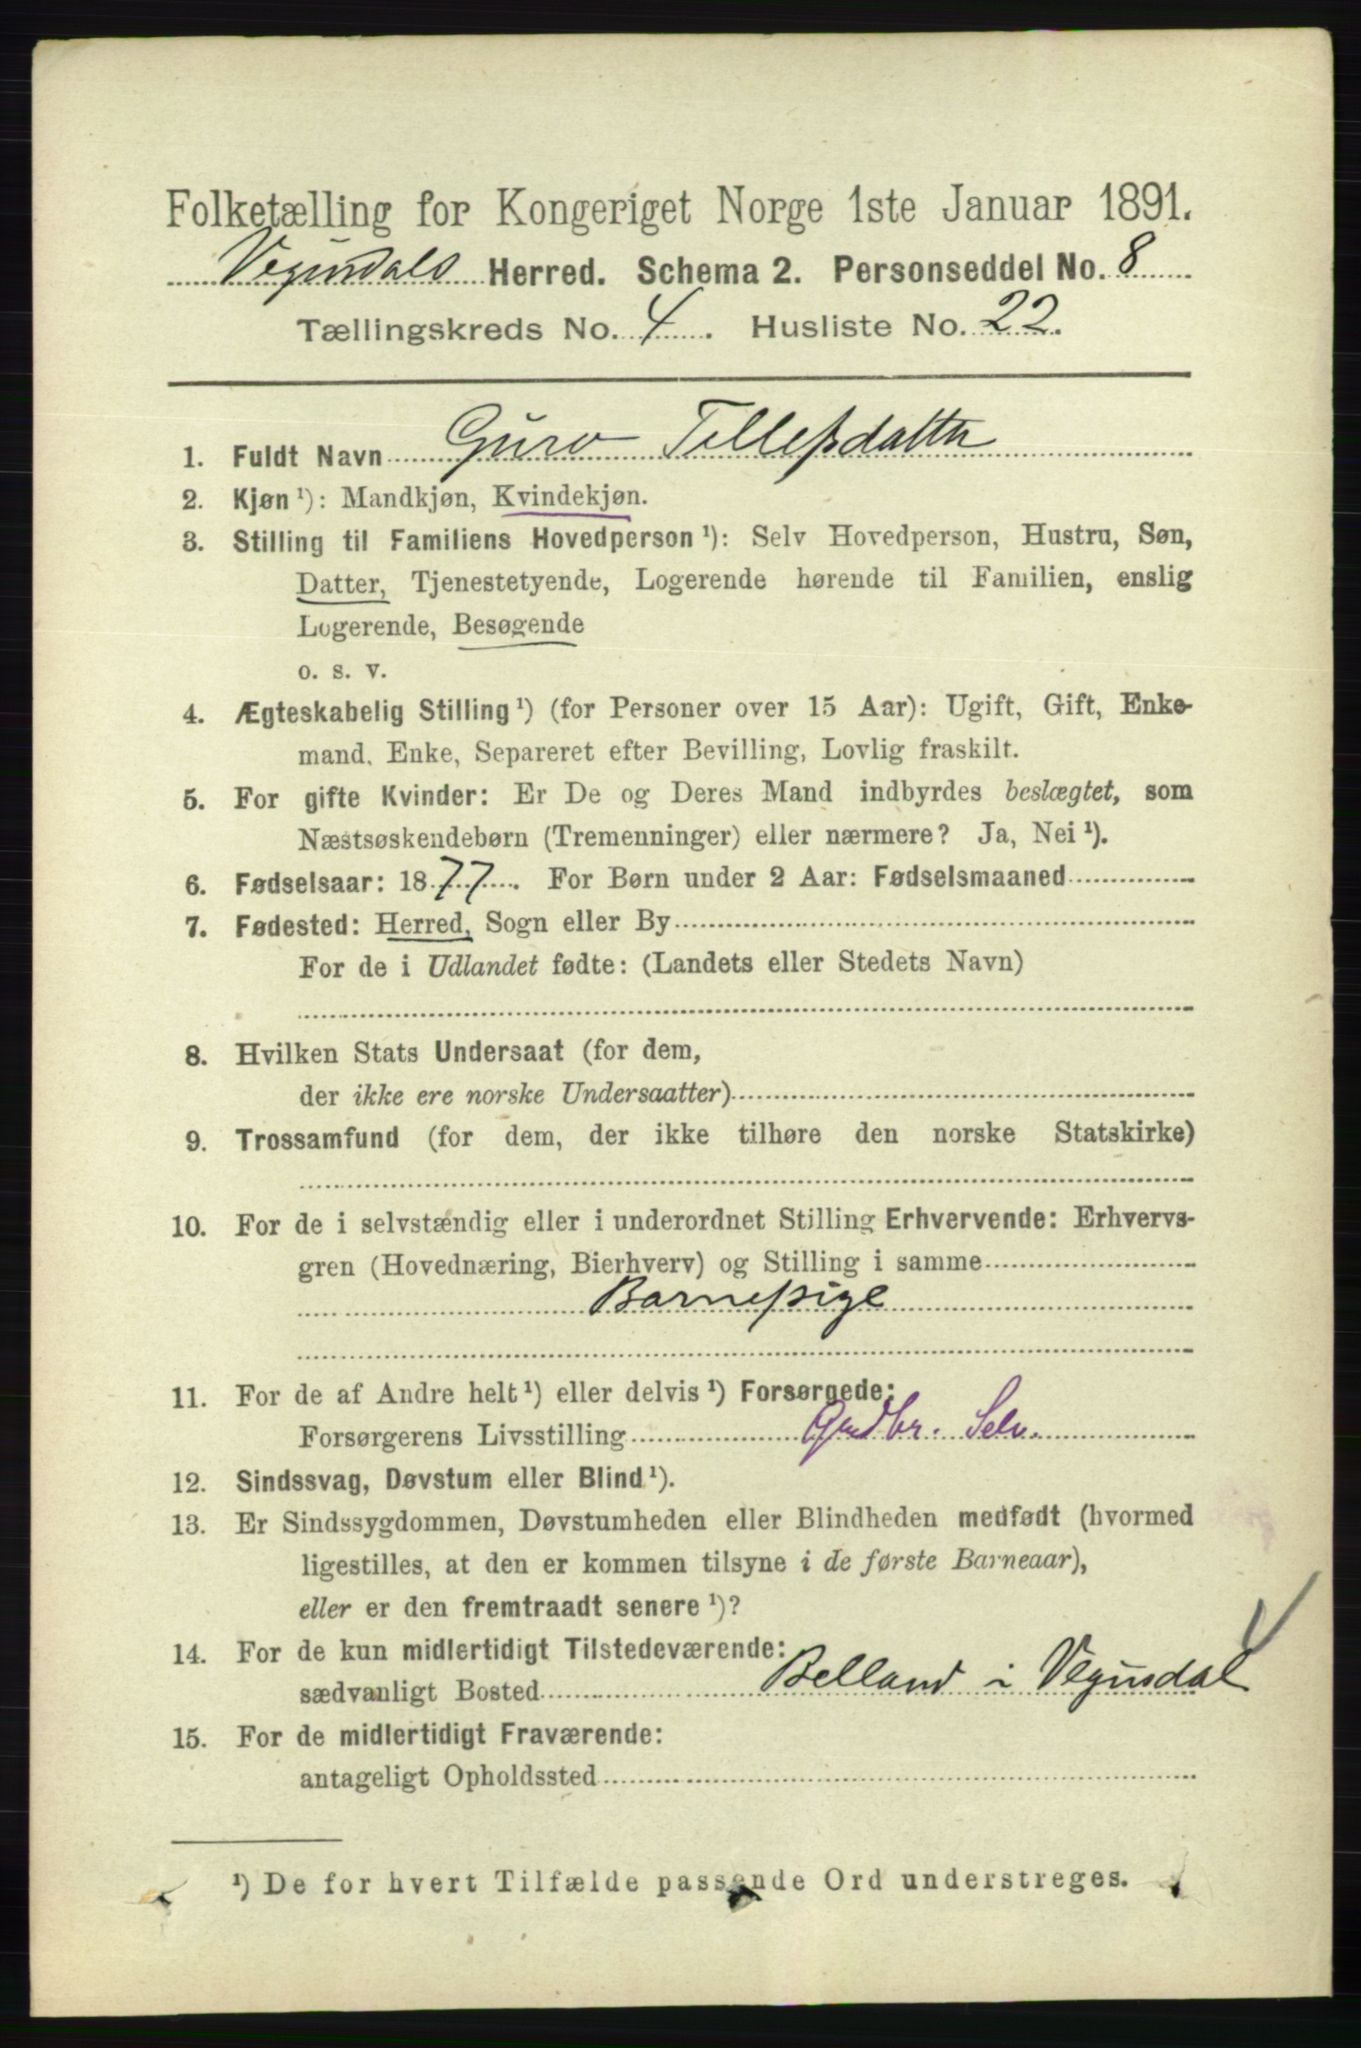 Folketælling for Kongeriget Norge 1ste Januar 1891.
Vegusdals Herred. Schema 2. Personseddel No. 8
Tællingskreds No. 4. Husliste No. 22.
1. Fuldt Navn Guro Tellefsdatter
2. Kjøn ¹): Mandkjøn, Kvindekjøn.
3. Stilling til Familiens Hovedperson ¹): Selv Hovedperson, Hustru, Søn,
Datter, Tjenestetyende, Logerende hørende til Familien, enslig
Logerende, Besøgende
o. s. v.
4. Ægteskabelig Stilling ¹) (for Personer over 15 Aar): Ugift, Gift, Enke-
mand, Enke, Separeret efter Bevilling, Lovlig fraskilt.
5. For gifte Kvinder: Er De og Deres Mand indbyrdes beslægtet, som
Næstsøskendebørn (Tremenninger) eller nærmere? Ja, Nei ¹).
6. Fødselsaar: 1877. For Børn under 2 Aar: Fødselsmaaned
7. Fødested: Herred, Sogn eller By
For de i Udlandet fødte: (Landets eller Stedets Navn)
8. Hvilken Stats Undersaat (for dem,
der ikke ere norske Undersaatter)
9. Trossamfund (for dem, der ikke tilhøre den norske Statskirke)
10. For de i selvstændig eller i underordnet Stilling Erhvervende: Erhvervs-
gren (Hovednæring, Bierhverv) og Stilling i samme
Barnepige
11. For de af Andre helt ¹) eller delvis ¹) Forsørgede:
Forsørgerens Livsstilling Grdbr. Selv.
12. Sindssvag, Døvstum eller Blind ¹).
13. Er Sindssygdommen, Døvstumheden eller Blindheden medfødt (hvormed
ligestilles, at den er kommen tilsyne i de første Barneaar),
eller er den fremtraadt senere ¹)?
14. For de kun midlertidigt Tilstedeværende:
sædvanligt Bosted Belland i Vegusdal
15. For de midlertidigt Fraværende:
antageligt Opholdssted
¹) De for hvert Tilfælde passende Ord understreges.